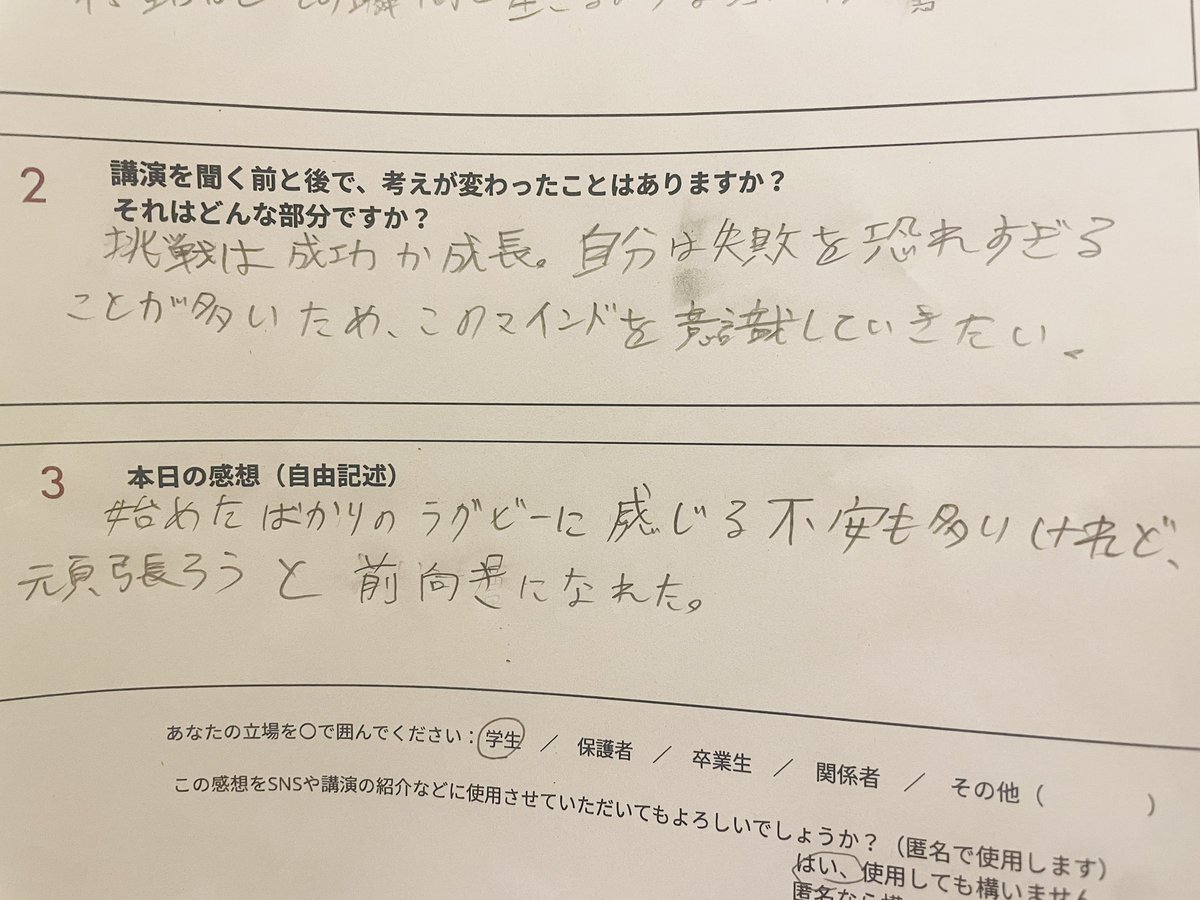 2
講演を聞く前と後で、考えが変わったことはありますか？
それはどんな部分ですか？
挑戦は成功か成長。自分は失敗を恐れすぎる
ことが多いため、このマインドを意識していきたい。
3
本日の感想（自由記述）
始めたばかりのラグビーに感じる不安も多いけれど、
頑張ろうと前向きになれた。
あなたの立場を〇で囲んでください：学生 ／ 保護者 ／ 卒業生 ／ 関係者 ／ その他（ ）
この感想をSNSや講演の紹介などに使用させていただいてもよろしいでしょうか？（匿名で使用します）
はい、使用しても構いません
匿名なら